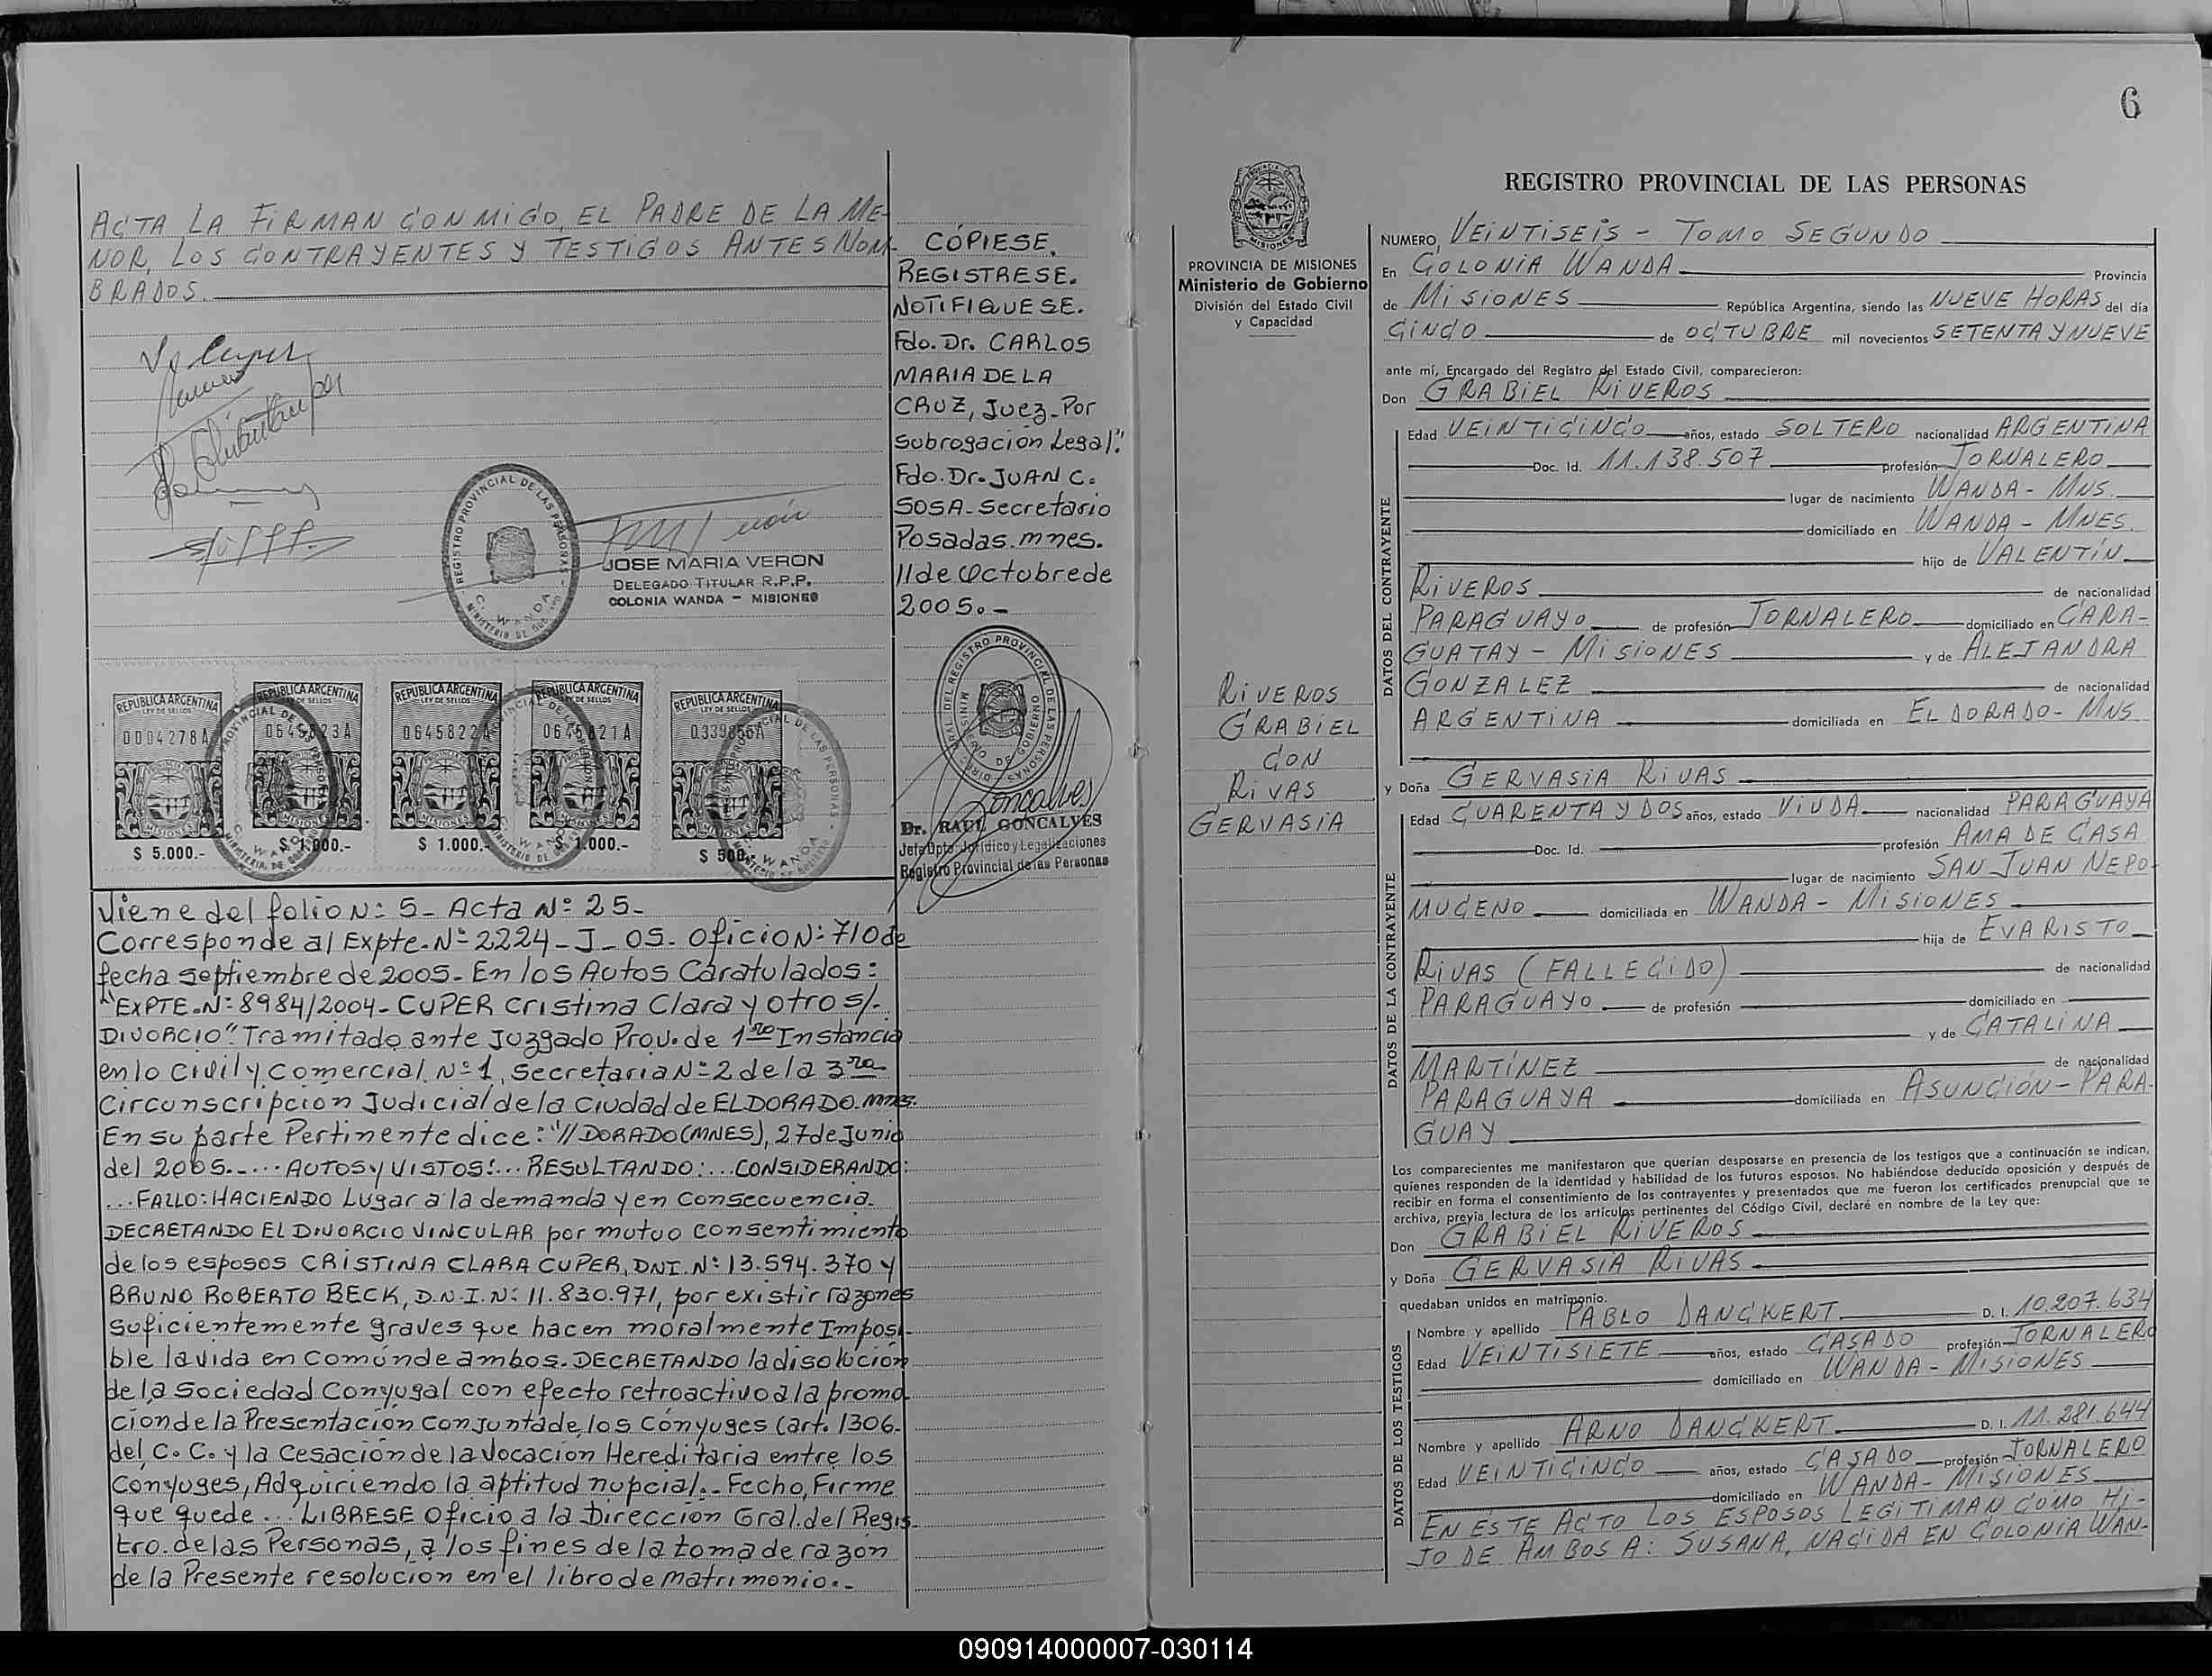 ACTA LA FIRMAN CONMIGO, EL PADRE DE LA ME-
NOR, LOS CONTRAYENTES Y TESTIGOS ANTES NOM-
BRADOS.
JOSE MARIA VERON
DELEGADO TITULAR R.P.P.
COLONIA WANDA - MISIONES
REGISTRO PROVINCIAL DE LAS PERSONAS
C. WANDA
REPUBLICA ARGENTINA
LEY DE SELLOS
0004278A
MISIONES
$ 5.000.-
REPUBLICA ARGENTINA
LEY DE SELLOS
MISIONES
$ 1.000.-
REPUBLICA ARGENTINA
LEY DE SELLOS
0645822A
MISIONES
$ 1.000.-
REPUBLICA ARGENTINA
LEY DE SELLOS
0645821A
MISIONES
$ 1.000.-
REPUBLICA ARGENTINA
LEY DE SELLOS
MISIONES
$ 500.-
Viene del folio N: 5- Acta Nº 25-
Corresponde al Expte-Nº 2224-J-05- oficio N: 710 de
fecha septiembre de 2005- En los Autos Caratulados:
"EXPTE.N: 8984/2004- CUPER Cristina Clara y otro s/.
DIVORCIO". Tramitado ante Juzgado Prov. de 1ra Instancia
en lo Civil y Comercial Nº 1, Secretaria Nº 2 de la 3ra
Circunscripcion Judicial de la Ciudad de ELDORADO. Mnes.
En su parte Pertinente dice: "// DORADO (MNES), 27 de Junio
del 2005..... AUTOS y VISTOS:... RESULTANDO:... CONSIDERANDO:
...FALLO: HACIENDO Lugar a la demanda y en Consecuencia.
DECRETANDO EL DIVORCIO VINCULAR por mutuo consentimiento
de los esposos CRISTINA CLARA CUPER, DNI. N: 13.594.370 y
BRUNO ROBERTO BECK, D.N.I. N: 11.830.971, por existir razones
suficientemente graves que hacen moralmente Imposi-
ble la vida en Común de ambos. DECRETANDO la disolución
de la Sociedad Conyugal con efecto retroactivo a la promo
cion de la Presentación Conjunta de los Cónyuges (art. 1306.
del C.C. y la Cesación de la Vocación Hereditaria entre los
Conyuges, Adquiriendo la aptitud nupcial.. Fecho, Firme
que quede... LIBRESE Oficio a la Direccion Gral. del Regis-
tro. de las Personas, a los fines de la toma de razón
de la Presente resolucion en el libro de matrimonio.-
CÓPIESE.
REGISTRESE.
NOTIFIQUESE.
Fdo. Dr. CARLOS
MARIA DE LA
CRUZ, Juez- Por
Subrogación Legal."
Fdo. Dr. JUAN C.
SOSA- Secretario
Posadas. mnes.
11 de Octubre de
2005.-
Goncalves
Dr. RAUL GONCALVES
Jefe Dpto. Jurídico y Legalizaciones
Registro Provincial de las Personas
6
PROVINCIA DE MISIONES
Ministerio de Gobierno
División del Estado Civil
y Capacidad
RIVEROS
GRABIEL
CON
RIVAS
GERVASIA
REGISTRO PROVINCIAL DE LAS PERSONAS
NUMERO, VEINTISEIS - TOMO SEGUNDO
En COLONIA WANDA Provincia
de MISIONES República Argentina, siendo las NUEVE HORAS del día
CINCO de OCTUBRE mil novecientos SETENTA Y NUEVE
ante mí, Encargado del Registro del Estado Civil, comparecieron:
Don GRABIEL RIVEROS
DATOS DEL CONTRAYENTE
Edad VEINTICINCO años, estado SOLTERO nacionalidad ARGENTINA
Doc. Id. 11.138.507 profesión JORNALERO
lugar de nacimiento WANDA - MNS.
domiciliado en WANDA - MNES.
hijo de VALENTÍN
RIVEROS de nacionalidad
PARAGUAYO de profesión JORNALERO domiciliado en CARA-
GUATAY - MISIONES y de ALEJANDRA
GONZALEZ de nacionalidad
ARGENTINA domiciliada en ELDORADO - MNS
y Doña GERVASIA RIVAS
DATOS DE LA CONTRAYENTE
Edad CUARENTA Y DOS años, estado VIUDA nacionalidad PARAGUAYA
Doc. Id. profesión AMA DE CASA
lugar de nacimiento SAN JUAN NEPO-
MUCENO domiciliada en WANDA - MISIONES
hija de EVARISTO
RIVAS (FALLECIDO) de nacionalidad
PARAGUAYO de profesión domiciliado en
y de CATALINA
MARTÍNEZ de nacionalidad
PARAGUAYA domiciliada en ASUNCIÓN - PARA-
GUAY
Los comparecientes me manifestaron que querían desposarse en presencia de los testigos que a continuación se indican,
quienes responden de la identidad y habilidad de los futuros esposos. No habiéndose deducido oposición y después de
recibir en forma el consentimiento de los contrayentes y presentados que me fueron los certificados prenupcial que se
archiva, previa lectura de los artículos pertinentes del Código Civil, declaré en nombre de la Ley que:
Don GRABIEL RIVEROS
y Doña GERVASIA RIVAS
quedaban unidos en matrimonio.
DATOS DE LOS TESTIGOS
Nombre y apellido PABLO DANCKERT D. I. 10.207.634
Edad VEINTISIETE años, estado CASADO profesión JORNALERO
domiciliado en WANDA - MISIONES
Nombre y apellido ARNO DANCKERT D. I. 11.281.644
Edad VEINTICINCO años, estado CASADO profesión JORNALERO
domiciliado en WANDA - MISIONES
EN ESTE ACTO LOS ESPOSOS LEGITIMAN COMO HI-
JO DE AMBOS A: SUSANA, NACIDA EN COLONIA WAN-
090914000007-030114